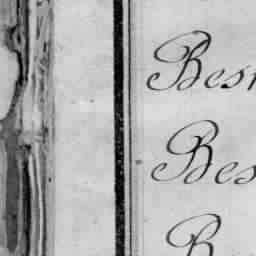 Besn
Bes
B